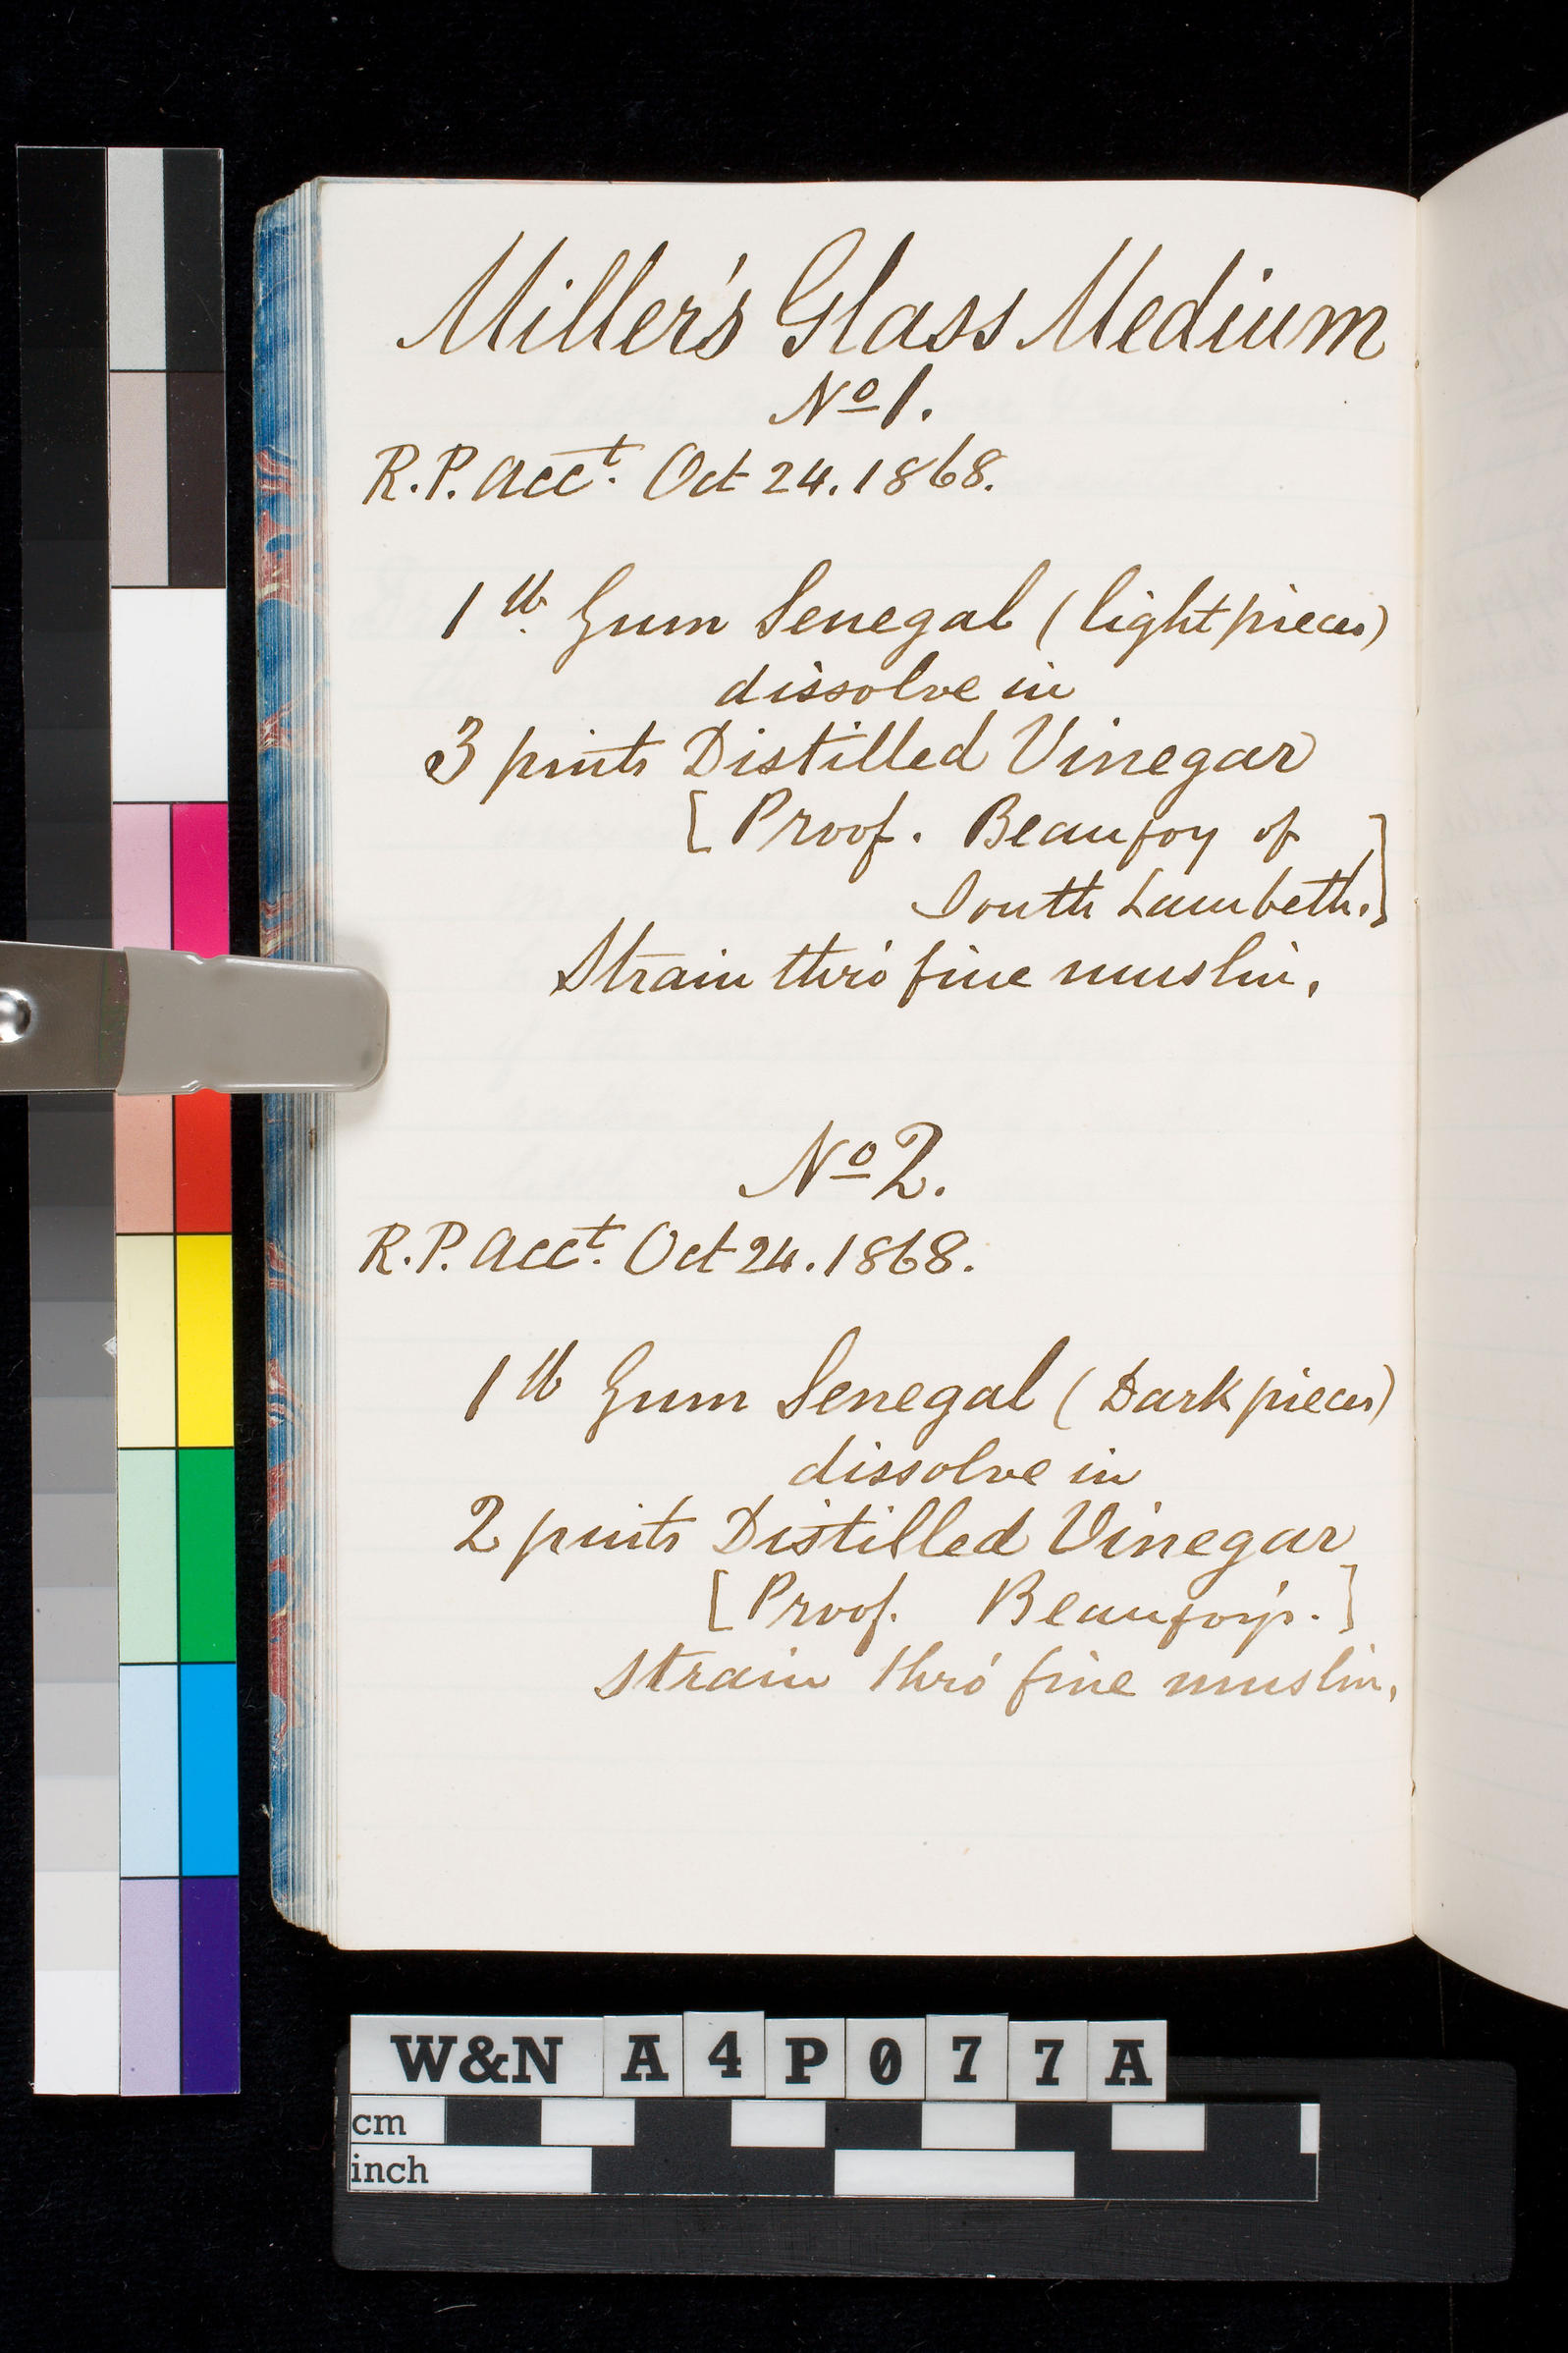 Miller's Glass Medium
Nº 1.
R.P. Acct. Oct 24. 1868.
1 lb. Gum Senegal (light pieces)
dissolve in
3 pints Distilled Vinegar
[Proof. Beaufoy of
South Lambeth.]
Strain thro' fine muslin.
Nº 2.
R.P. Acct. Oct 24. 1868.
1 lb Gum Senegal (Dark pieces)
dissolve in
2 pints Distilled Vinegar
[Proof. Beaufoy's.]
Strain thro' fine muslin.
W&N A4P077A
cm
inch